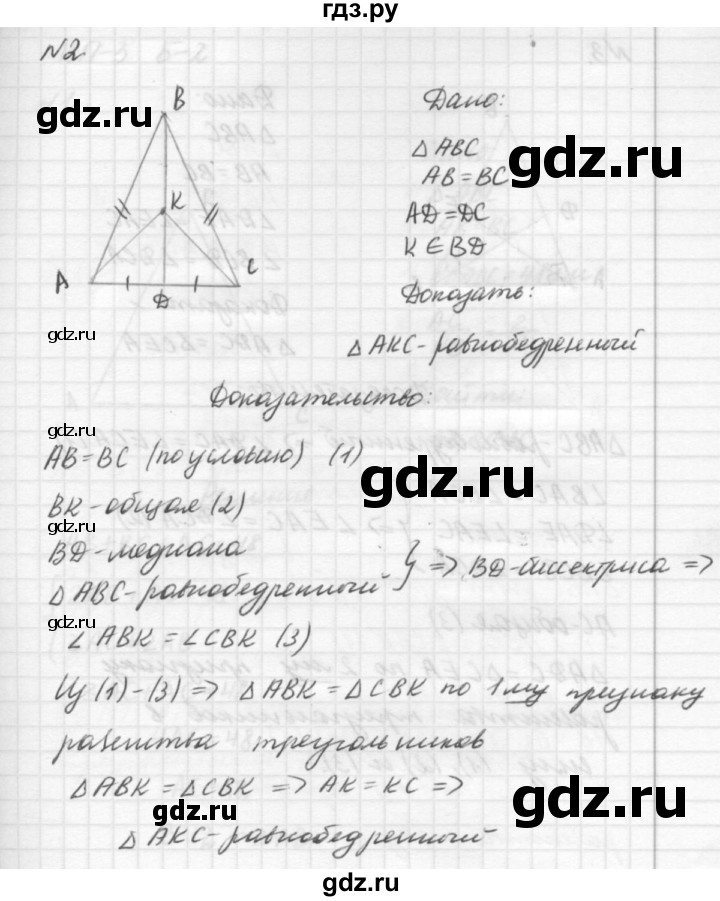 гдз.ру
№2
B
K
A
D
C
Дано:
△ABC
AB=BC
AD=DC
K∈BD
Доказать:
△AKC-равнобедренный
Доказательство:
AB=BC (по условию) (1)
BK-общая (2)
BD-медиана
△ABC-равнобедренный } => BD-биссектриса =>
∠ABK=∠CBK (3)
Из (1)-(3) => △ABK=△CBK по 1му признаку
равенства треугольников
△ABK=△CBK => AK=KC =>
△AKC-равнобедренный
gdz.ru
gdz.ru
gdz.ru
gdz.ru
gdz.ru
gdz.ru
gdz.ru
gdz.ru
gdz.ru